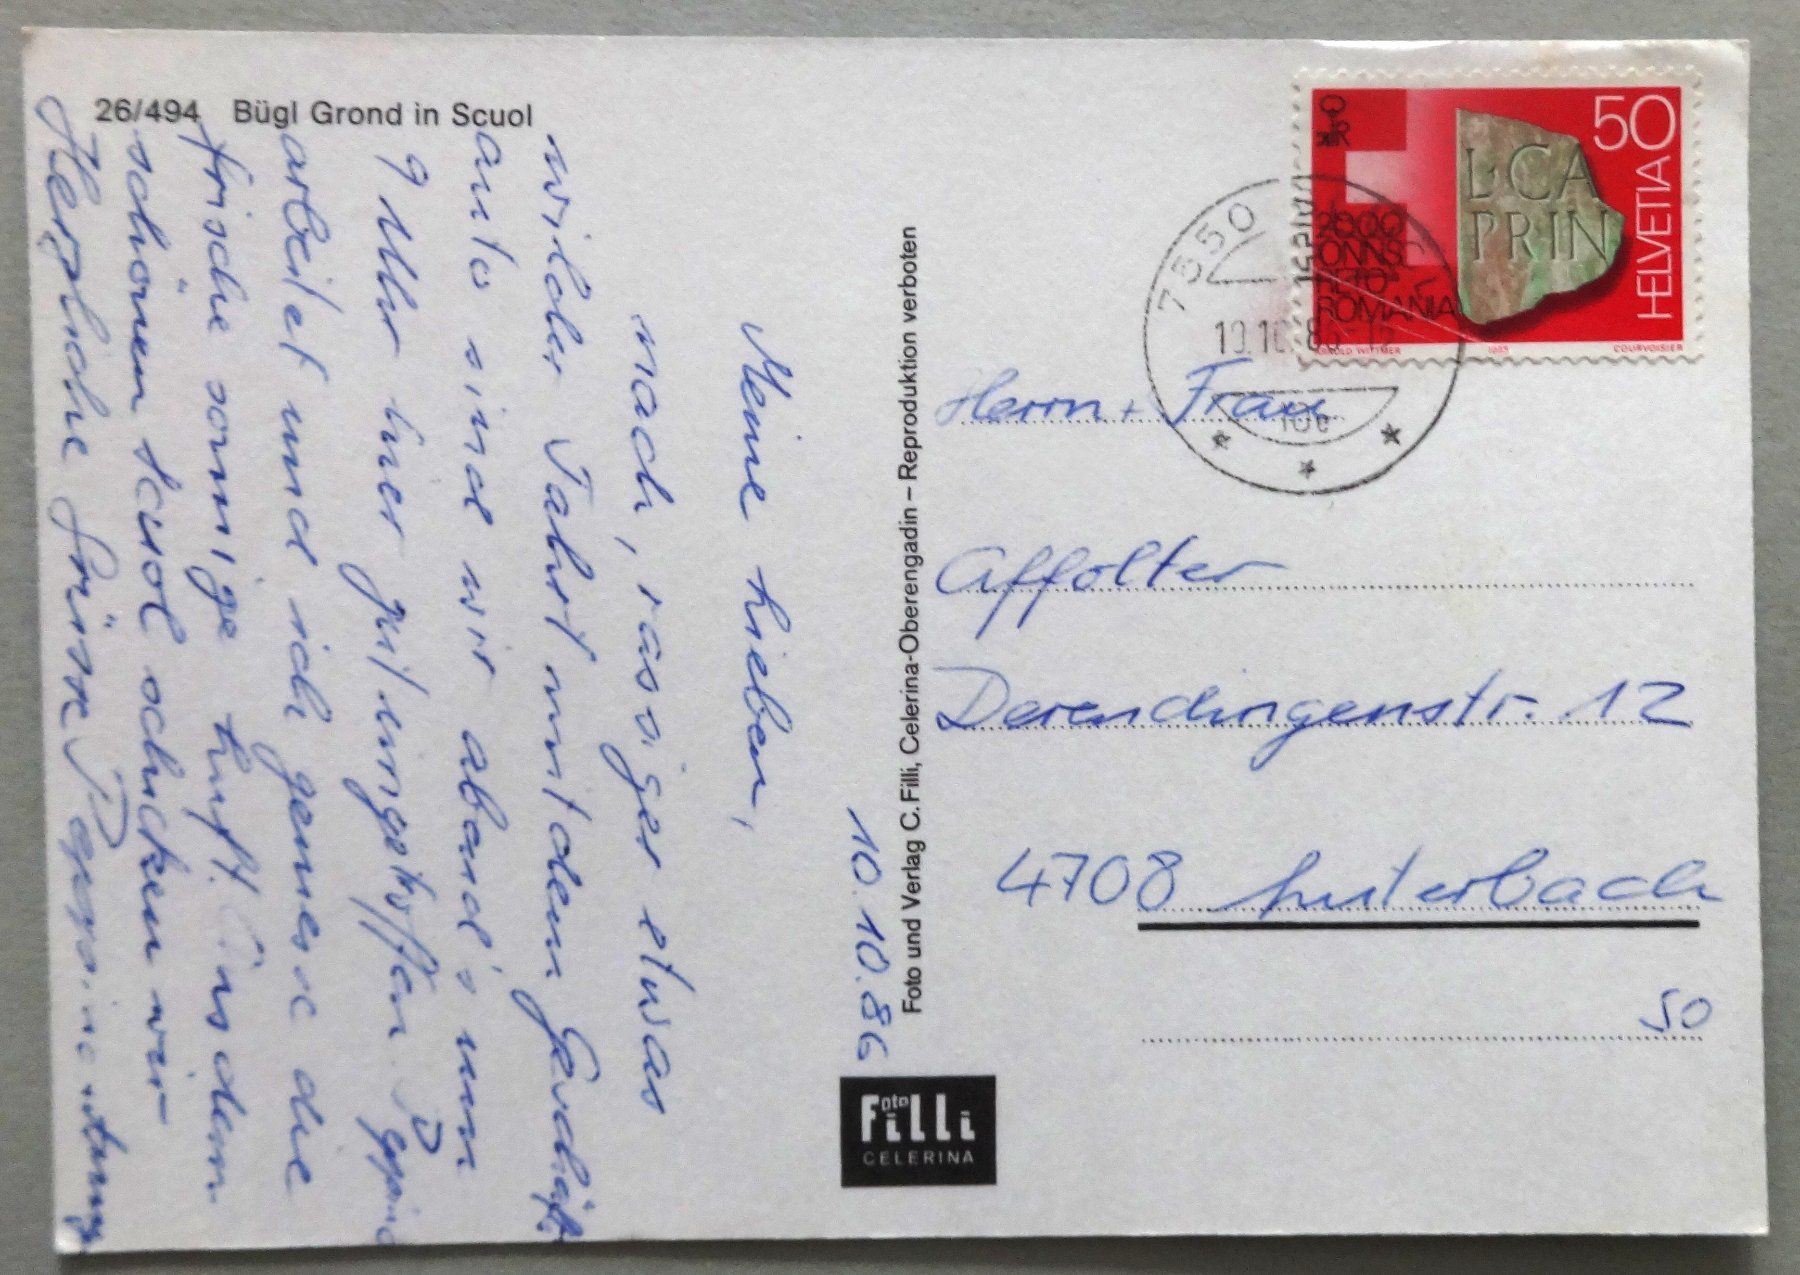 26/494 Bügl Grond in Scuol
10.10.86
Meine Lieben,
nach, rassiger etwas
wilder Fahrt mit dem Geschäfts-
auto sind wir abend's um
9 Uhr hier gut eingetroffen.
arbeitet und ich geniesse die
frische sonnige Luft. Aus dem
schönen Scuol schicken wir
Herzliche Grüsse
Foto und Verlag C. Filli, Celerina-Oberengadin – Reproduktion verboten
Foto
Filli
CELERINA
50
HELVETIA
L·CA
PRIN
2000
ONNS
RETO-
ROMANIA
ARNOLD WITTMER 1985 COURVOISIER
7550 SCUOL
10.10.86
Herrn + Frau
Affolter
Derendingenstr. 12
4708 Luterbach
50